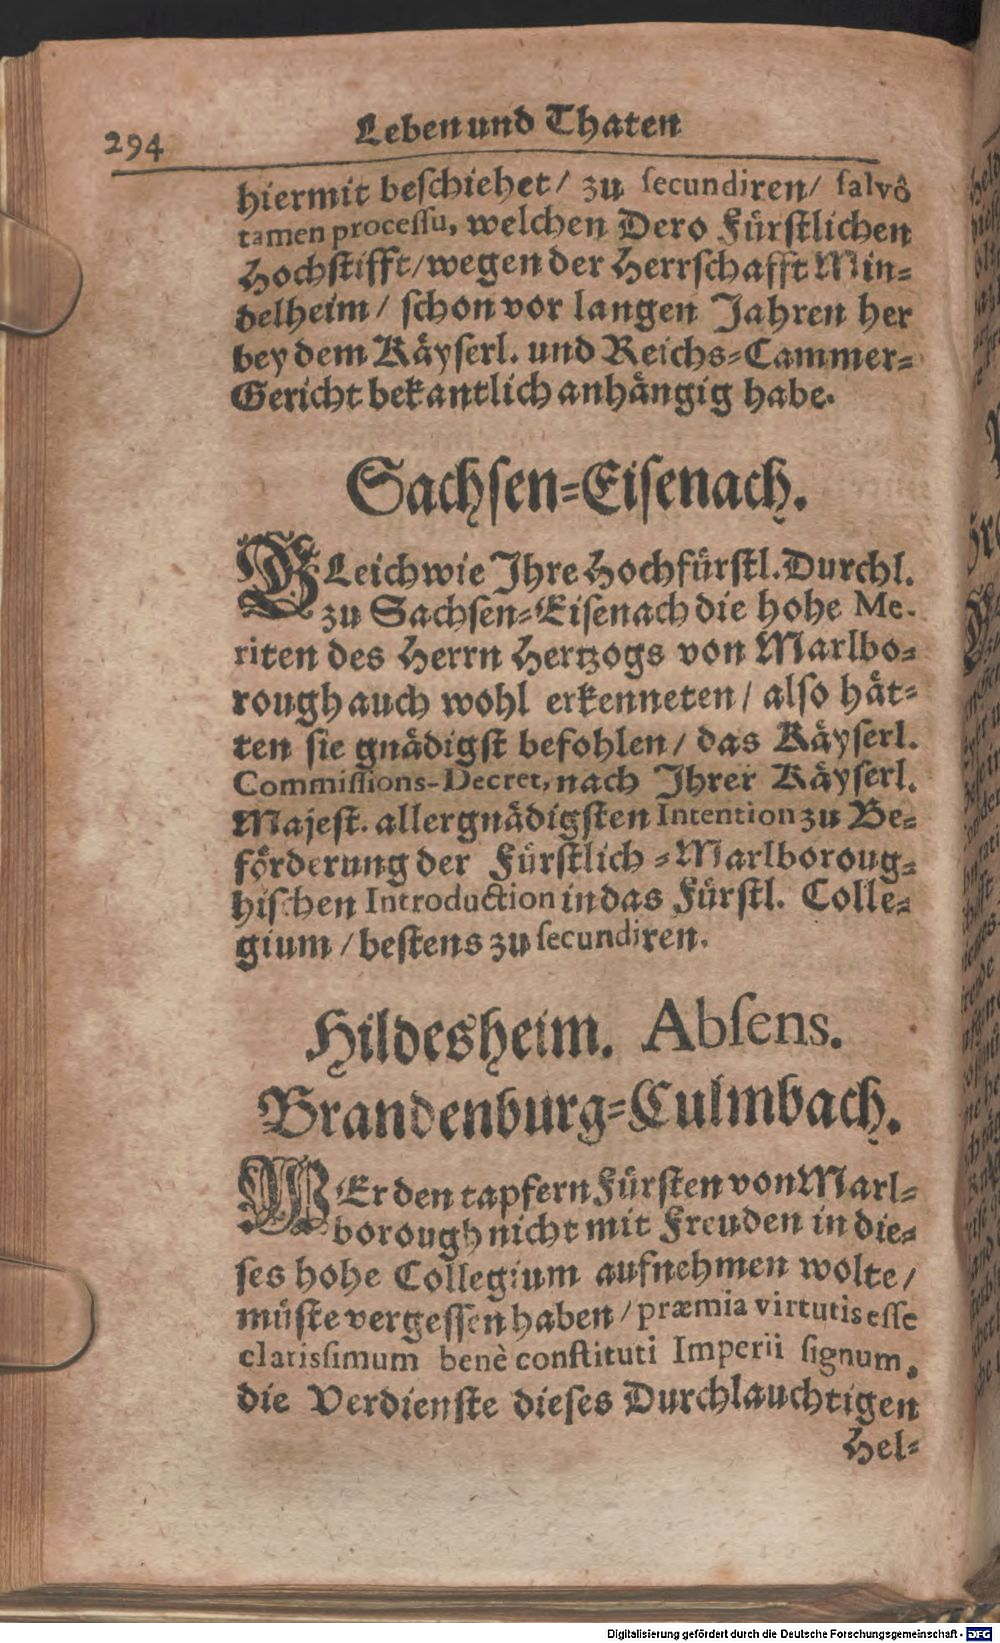 294
Leben und Thaten
hiermit beschiehet/ zu secundiren/ salvô
tamen processu, welchen Dero Fürstlichen
Hochstifft/wegen der Herrschafft Min-
delheim/ schon vor langen Jahren her
bey dem Käyserl. und Reichs-Cammer-
Gericht bekantlich anhängig habe.
Sachsen-Eisenach.
GLeichwie Ihre Hochfürstl. Durchl.
zu Sachsen-Eisenach die hohe Me-
riten des Herrn Hertzogs von Marlbo-
rough auch wohl erkenneten/ also hät-
ten sie gnädigst befohlen/ das Käyserl.
Commissions-Decret, nach Ihrer Käyserl.
Majest. allergnädigsten Intention zu Be-
förderung der Fürstlich-Marlboroug-
hischen Introduction in das Fürstl. Colle-
gium/bestens zu secundiren.
Hildesheim. Absens.
Brandenburg-Culmbach.
WEr den tapfern Fürsten von Marl-
borough nicht mit Freuden in die-
ses hohe Collegium aufnehmen wolte/
müste vergessen haben/præmia virtutis esse
clarissimum benè constituti Imperii signum,
die Verdienste dieses Durchlauchtigen
Hel-
Digitalisierung gefördert durch die Deutsche Forschungsgemeinschaft - DFG